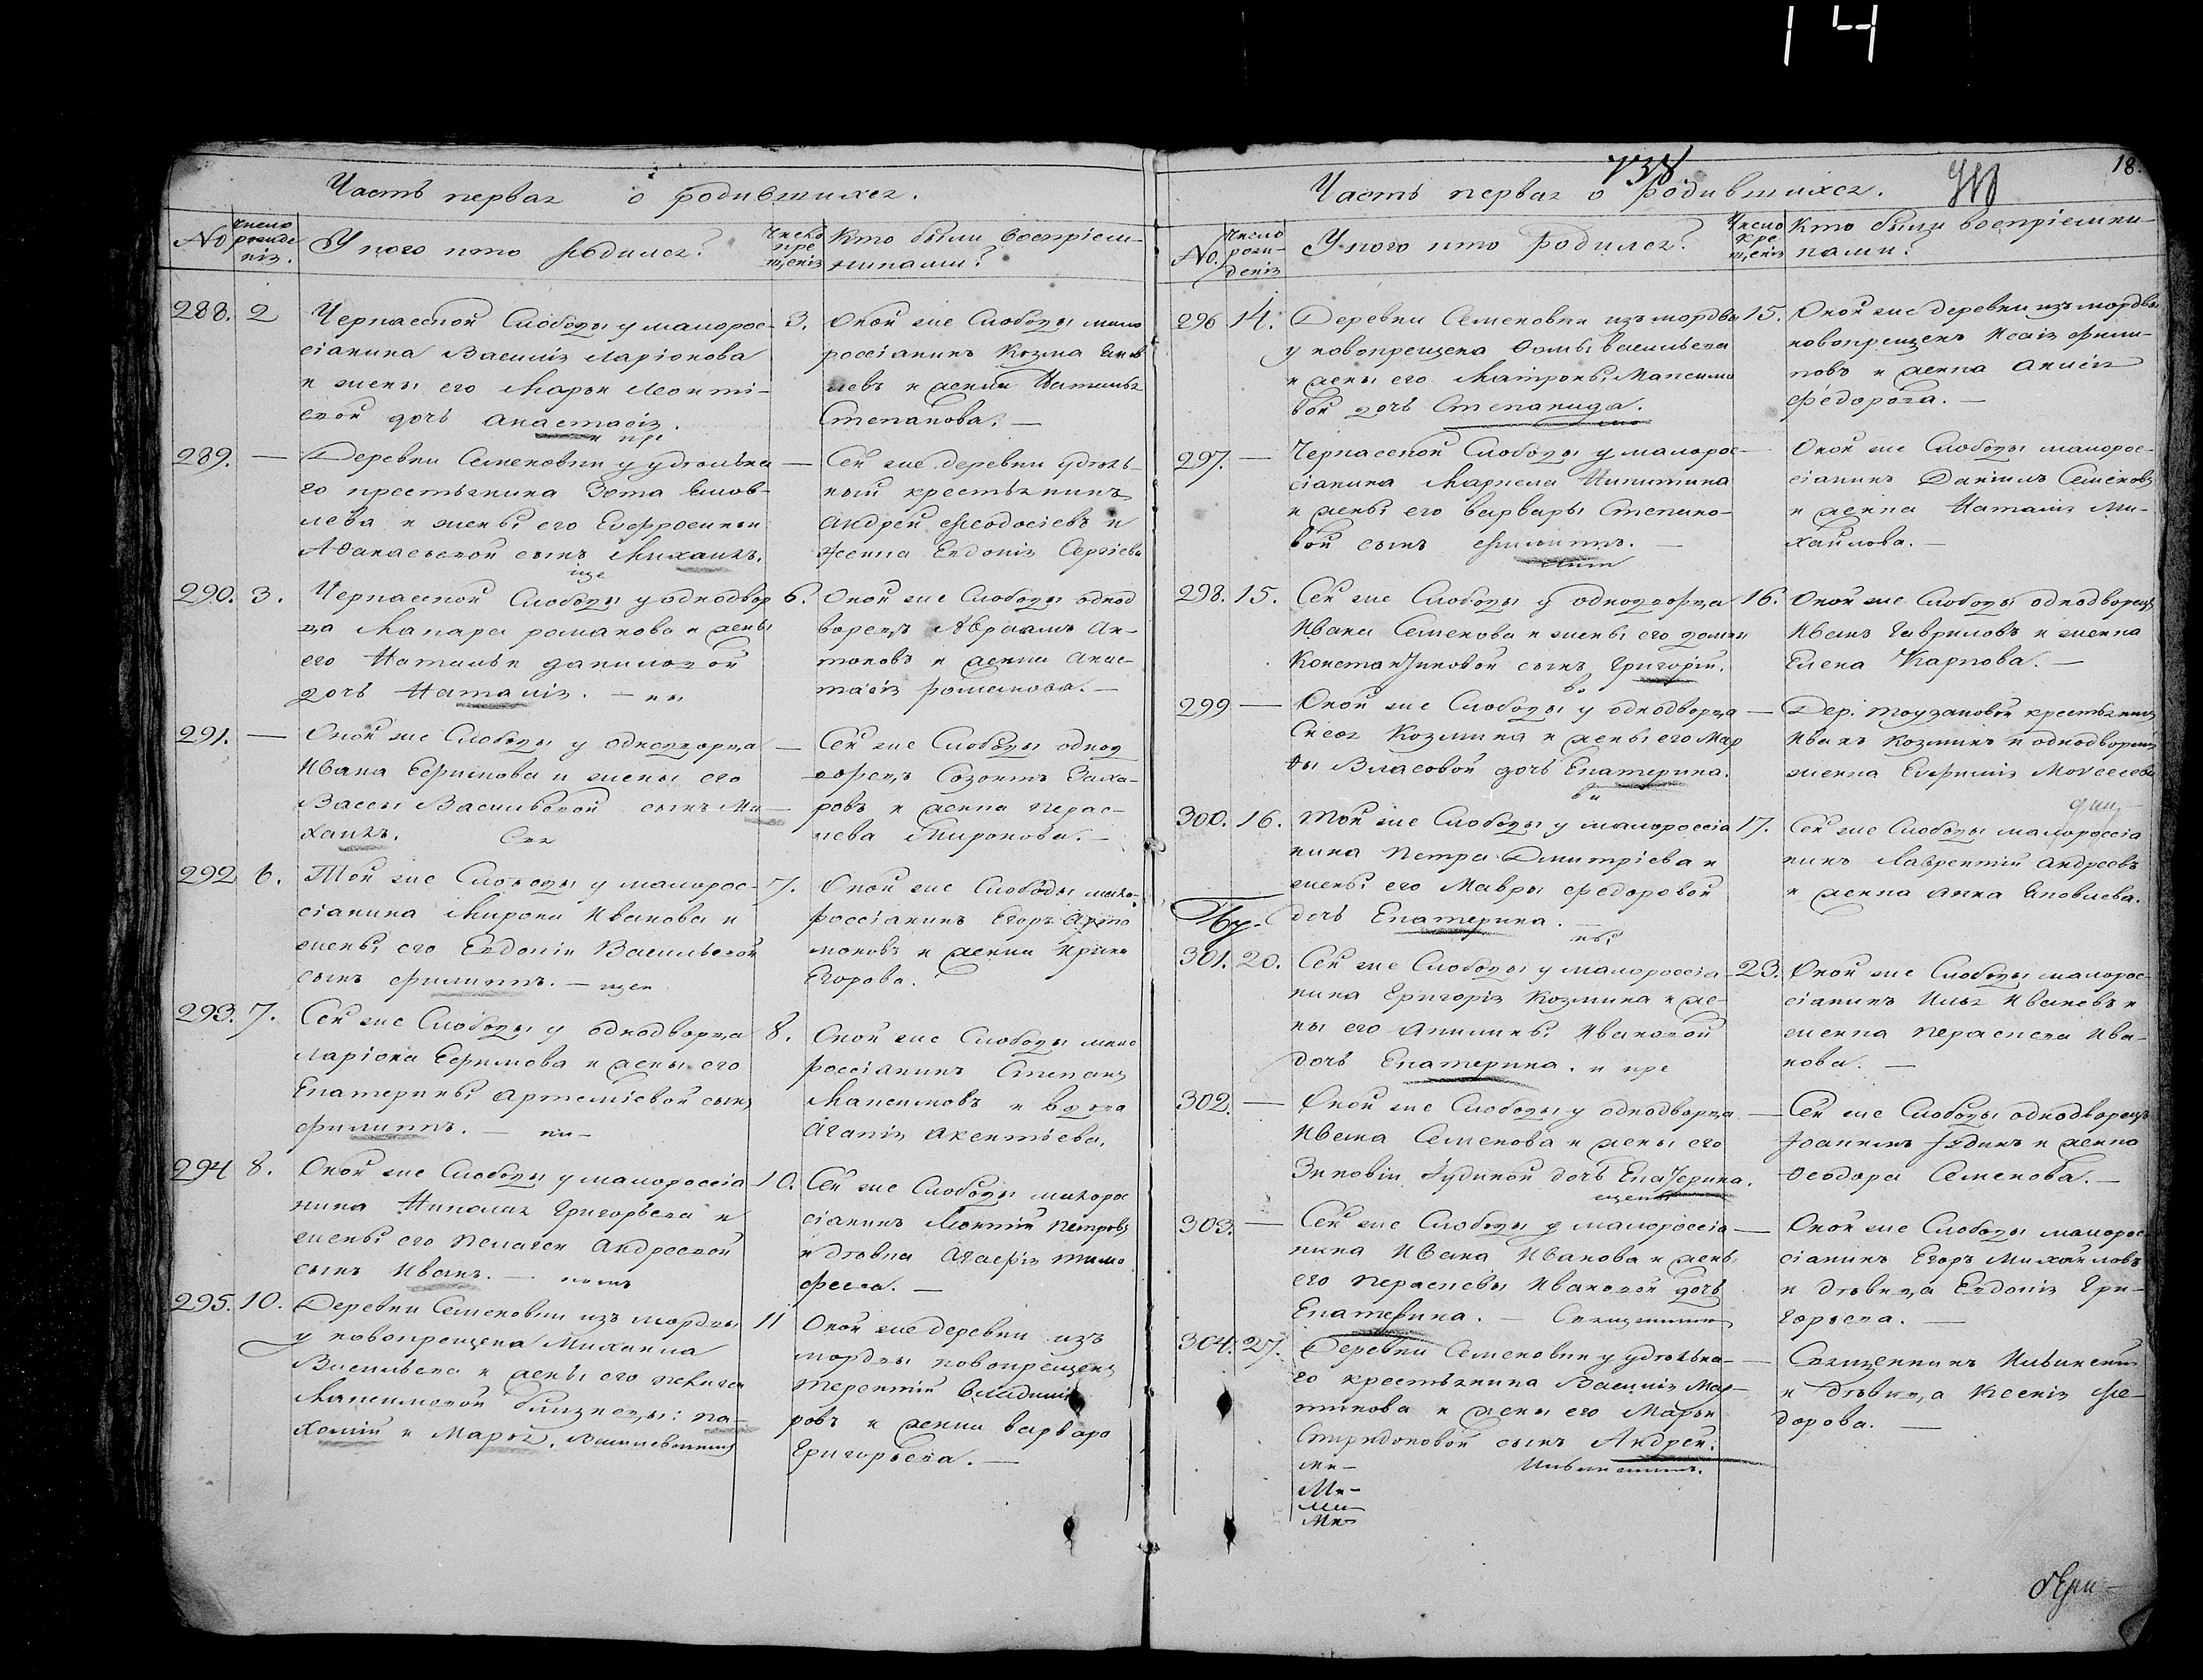 14
Часть первая о родившихся.
№
число рожде нія.
У кого кто родился?
число кре щенія
Кто были воспріем-
никами?
288. 2
Черкасской Слободы у малорос-
сіанина Василія Ларіонова
и жены его Марьи Леонті-
евой дочь Анастасія.
и кре
3.
Оной же Слободы мало
россіанинъ Козма Яков
левъ и женка Наталья
Степанова. —
289. —
Деревни Семеновки у удѣльна
го крестьянина Зота Яков-
лева и жены его Евфросиньи
Афанасьевой сынъ Михаилъ.
ще
—
Сей же деревни удѣль-
ный крестьянинъ
Андрей Феодосіевъ и
женка Евдокія Сергіева
290. 3.
Черкасской Слободы у однодвор
ца Макара романова и жены
его Натальи даниловой
дочь Наталія. —
6.
Оной же Слободы однод
ворецъ Авраамъ Ан-
тоновъ и женка Анас-
тасія романова. —
291. —
Оной же Слободы у однодворца
Ивана Ефимова и жены его
Вассы Васильевой сынъ Ми-
хаилъ.
Свя
—
Сей же Слободы однод
ворецъ Созонтъ Заха-
ровъ и женка Парас-
кева Миронова. —
292 6.
Той же Слободы у малорос-
сіанина Мирона Иванова и
жены его Евдокіи Васильевой
сынъ филиппъ. — щен
7.
Оной же Слободы мало-
россіанинъ Егоръ Арта
моновъ и женка Ирина
Егорова.
293. 7.
Сей же Слободы у однодворца
Ларіона Ефимова и жены его
Екатерины Артеміевой сынъ
филиппъ. — ни-
8.
Оной же Слободы мало
россіанинъ Степанъ
Максимовъ и вдова
Агапія Акентьева.
294 8.
Оной же Слободы у малороссіа
нина Николая Григорьева и
жены его Пелагеи Андреевой
сынъ Иванъ. — комъ
10.
Сей же Слободы малорос
сіанинъ Леонтій Петровъ
и дѣвка Агафія Тимо
феева. —
295. 10.
Деревни Семеновки изъ мордвы
у новокрещена Михаила
Васильева и жены его Пелагеи
Максимовой близнецы: Па-
хомій и Марья. Васильевичемъ
11
Оной же деревни изъ
мордвы новокрещенъ
Терентій Владими
ровъ и женка варвара
Григорьева. —
738
18.
Часть первая о родившихся.
№.
число рож- денія
У кого кто родился?
Число кре щенія
Кто были воспріемни-
ками?
296 14.
Деревни Семеновки изъ мордвы
у новокрещена Фомы васильева
и жены его Матроны Максимо
вой дочь Степанида.
15.
Оной же деревни изъ мордвы
новокрещенъ Исаія Фили-
повъ и женка Анисія
Федорова. —
297. —
Черкасской Слободы у малорос-
сіанина Маркела Никитина
и жены его варвары Степано-
вой сынъ филиппъ. —
Оной же Слободы малорос-
сіанинъ Даніилъ Семеновъ
и женка Наталія Ми-
хайлова. —
298. 15.
Сей же Слободы у однодворца
Ивана Семенова и жены его домны
Константиновой сынъ Григорій.
во
16.
Оной же Слободы однодворецъ
Иванъ Гавриловъ и женка
Елена Карпова. —
299 —
Оной же Слободы у однодворца
Сысоя Козмина и жены его Мар
фы Власовой дочь Екатерина.
—
Дер. Тоузаковой крестьянинъ
Иванъ Козминъ и однодворчес
женка Евфимія Моѵсеева
300. 16.
Той же Слободы у малороссіа
нина Петра Дмитріева и
жены его Мавры федоровой
дочь Екатерина. —
17.
Сей же Слободы малороссіа
нинъ Лаврентій Андреевъ
и женка Анна Яковлева.
301. 20.
Сей же Слободы у малороссіа
нина Григорія Козмина и же-
ны его Акилины Ивановой
дочь Екатерина. и кре
23.
Оной же Слободы малорос-
сіанинъ Илья Ивановъ и
женка Параскева Ива-
нова. —
302. —
Оной же Слободы у однодворца
Ивана Семенова и жены его
Зиновіи Іудиной дочь Екатерина.
щены
—
Сей же Слободы однодворецъ
Іоакимъ Іудинъ и женка
Феодора Семенова. —
303. —
Сей же Слободы у малороссіа
нина Ивана Иванова и жены
его Параскевы Ивановой дочь
Екатерина. — Священникомъ
—
Оной же Слободы малорос
сіанинъ Егоръ Михайловъ
и дѣвица Евдокія Гри-
горьева. —
304. 27.
Деревни Семеновки у удѣльна-
го крестьянина Василія Мар-
тинова и жены его Марьи
Спиридоновой сынъ Андрей.
Ильинскимъ.
—
Священникъ Ильинскій
и дѣвица Ксенія Фе-
дорова. —
Ми-
Ми-
Ми-